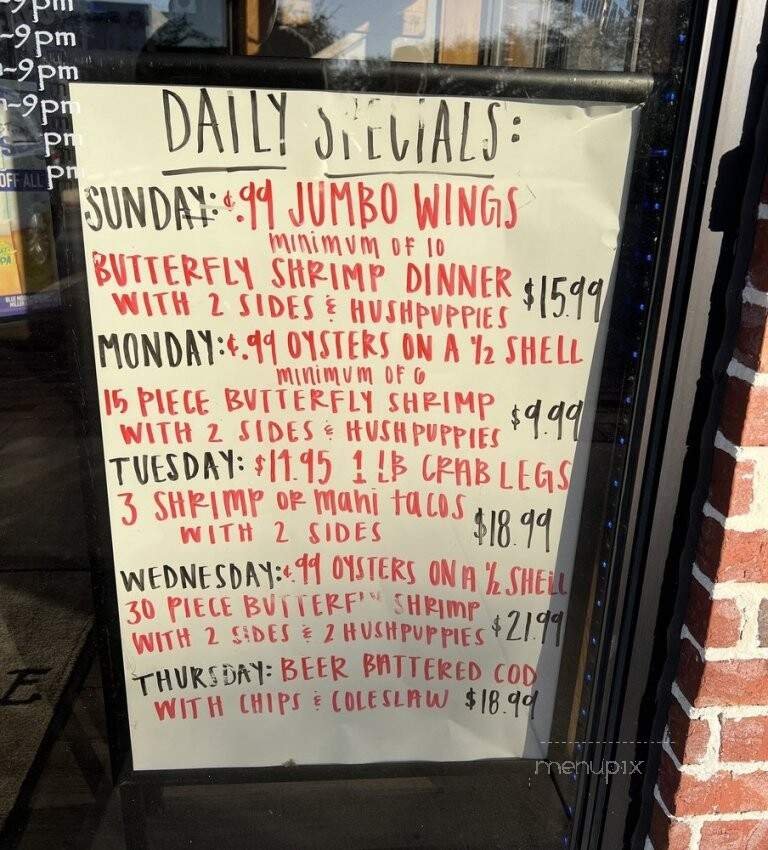 9pm
-9pm
-9pm
-9pm
pm
pm
OFF ALL
DAILY SPECIALS:
SUNDAY: ¢.99 JUMBO WINGS
MINIMUM OF 10
BUTTERFLY SHRIMP DINNER $15.99
WITH 2 SIDES & HUSHPUPPIES
MONDAY: ¢.99 OYSTERS ON A ½ SHELL
MINIMUM OF 6
15 PIECE BUTTERFLY SHRIMP $9.99
WITH 2 SIDES & HUSHPUPPIES
TUESDAY: 1 LB CRAB LEGS
3 SHRIMP OR Mahi tacos $18.99
WITH 2 SIDES
WEDNESDAY: ¢.99 OYSTERS ON A ½ SHELL
30 PIECE BUTTERFLY SHRIMP $21.99
WITH 2 SIDES & 2 HUSHPUPPIES
THURSDAY: BEER BATTERED COD
WITH CHIPS & COLESLAW $18.99
menupix